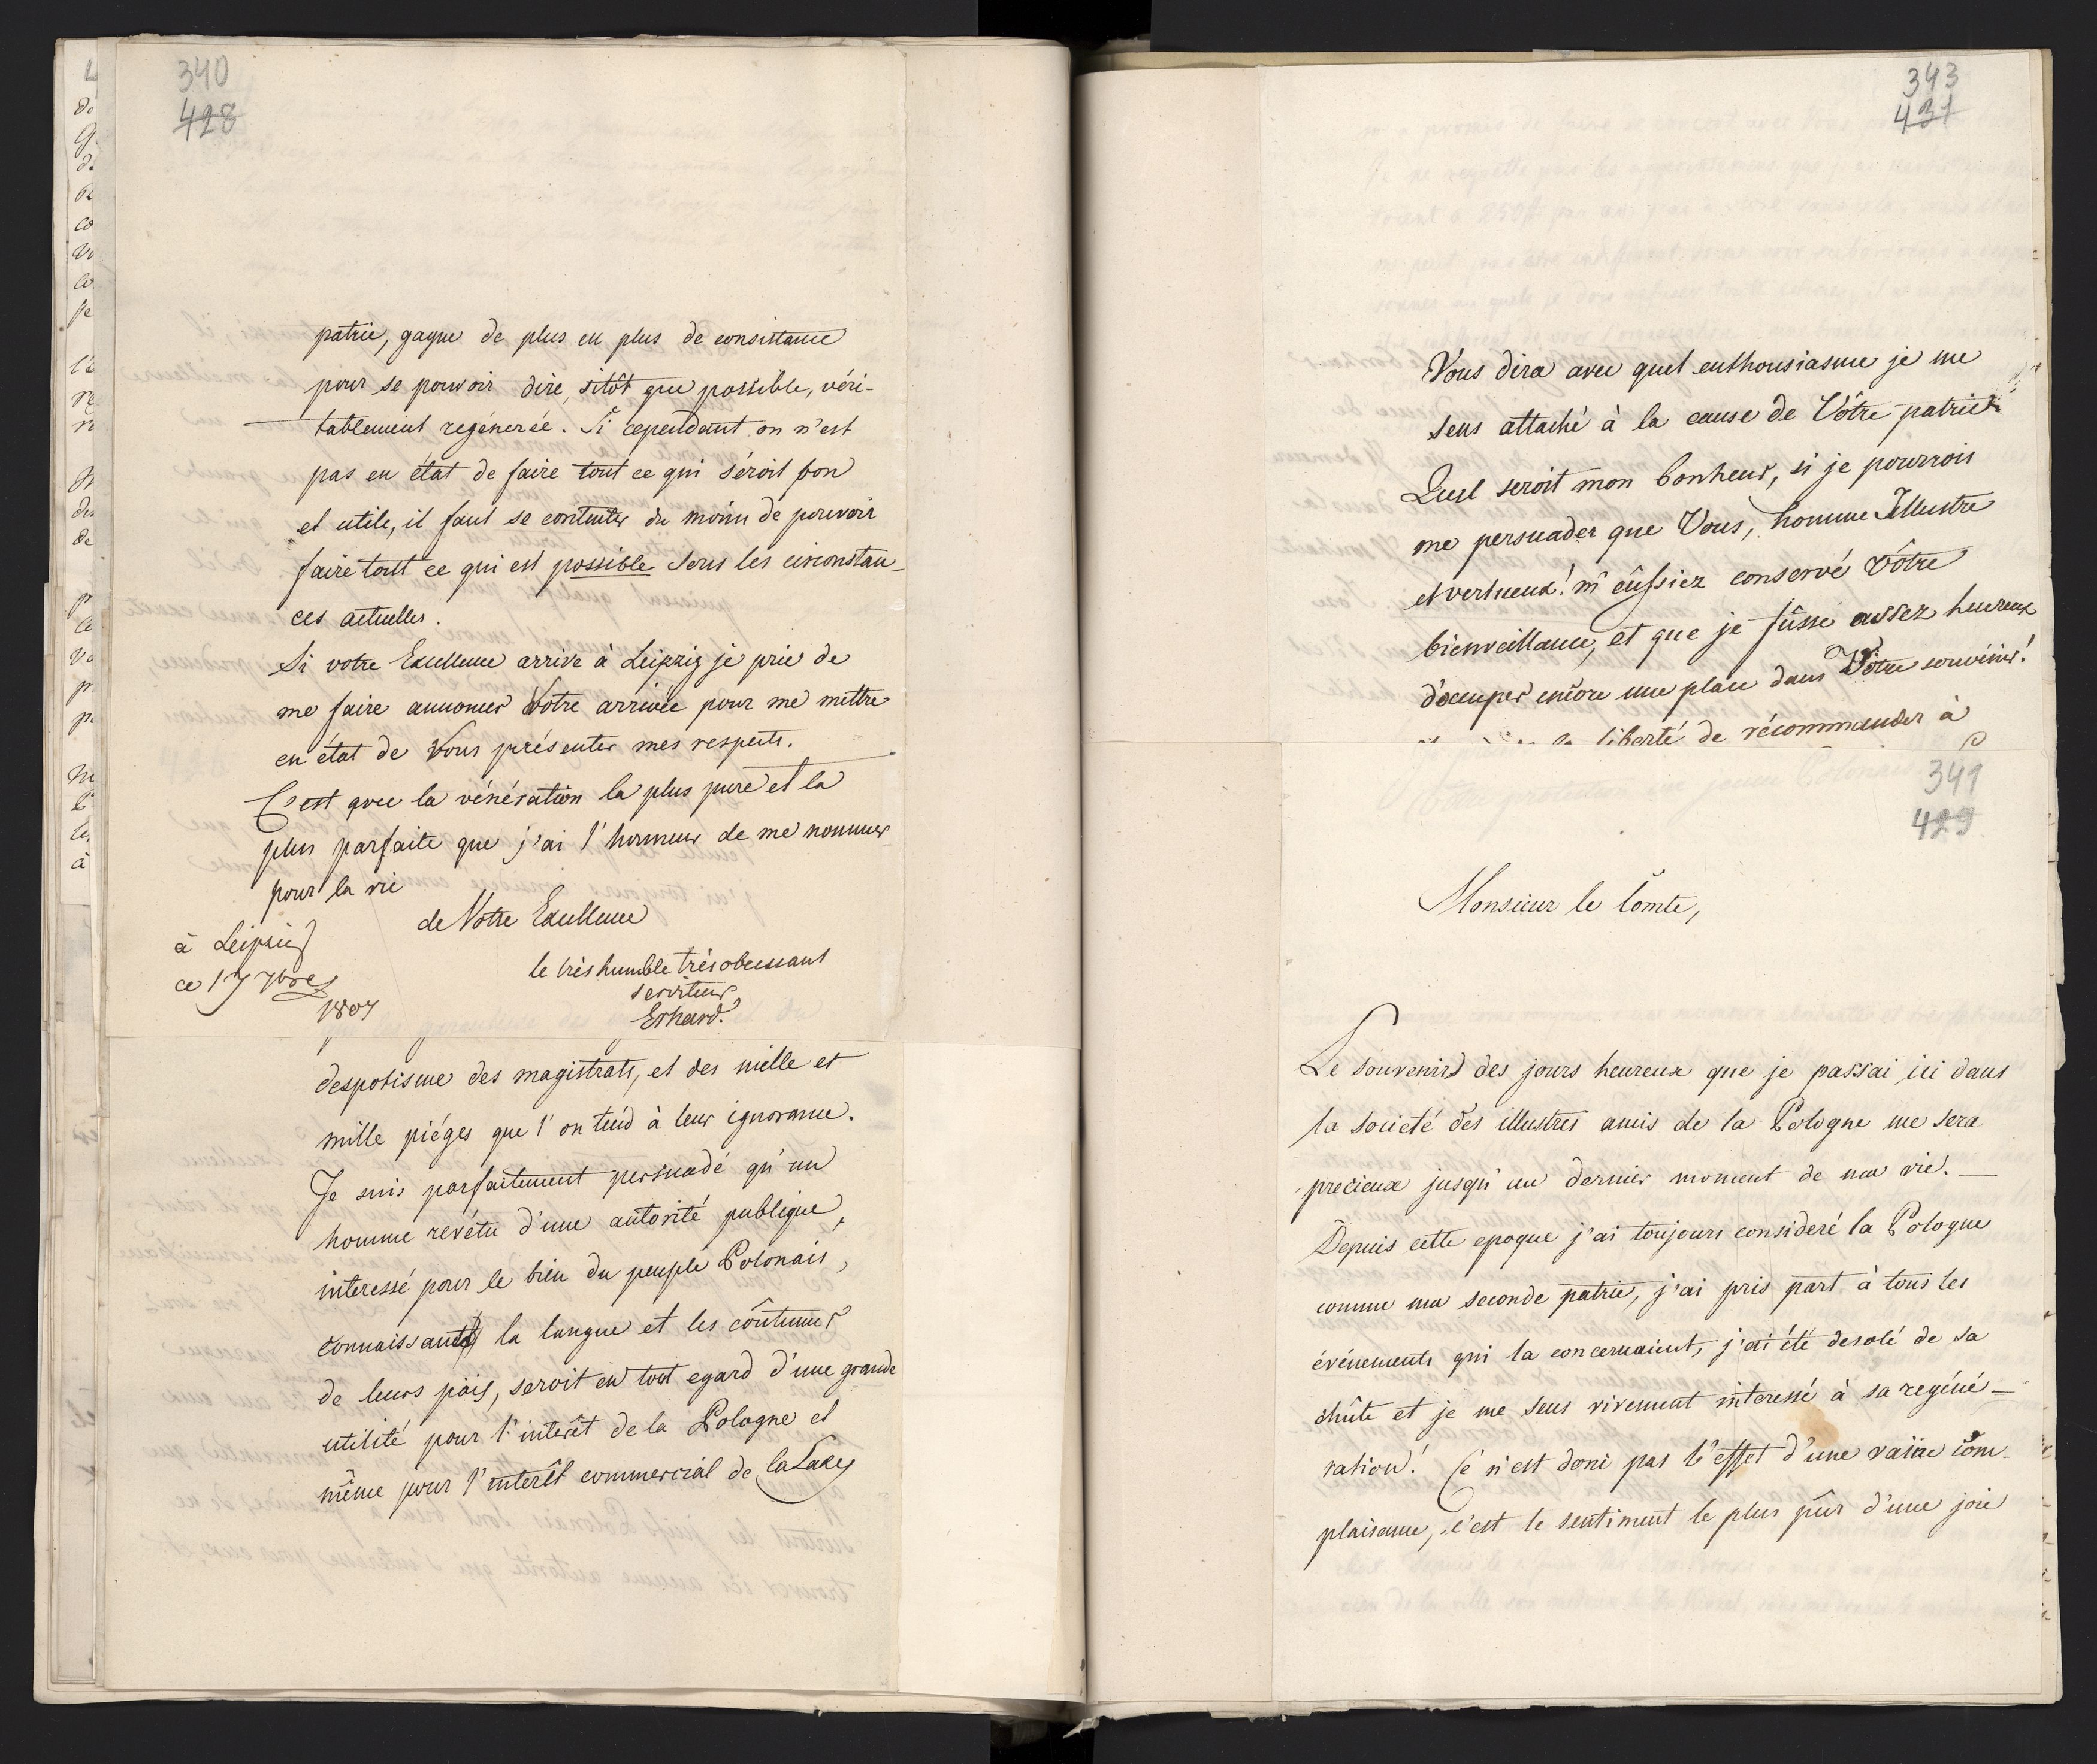 340
428
patrie, gagne de plus en plus de consistance
pour se pouvoir dire, sitôt que possible, véri-
tablement regénerée. Si cependant on n'est
pas en état de faire tout ce qui séroit bon
et utile, il faut se contenter du moins de pouvoir
faire tout ce qui est possible sous les circonstan-
ces actuelles.
Si votre Excellence arrive à Leipzig je prie de
me faire annoncer Votre arrivée pour me mettre
en état de Vous présenter mes respects.
C'est avec la vénération la plus pure et la
plus parfaite que j'ai l'honneur de me nommer
pour la vie
de Votre Excellence
à Leipzig
le très humble très obeissant
ce 17 7bre
serviteur
1807
Erhard.
despotisme des magistrats, et des mille et
mille piéges que l'on tend à leur ignorance.
Je suis parfaitement persuadé qu'un
homme revétu d'une autorité publique,
interessé pour le bien du peuple Polonais,
connaissant la langue et les coûtumes
de leurs païs, seroit en tout egard d'une grande
utilité pour l'interêt de la Pologne et
même pour l'interêt commercial de la Saxe
343
431
Vous dira avec quel enthousiasme je me
sens attaché à la cause de Vôtre patrie
Quel seroit mon bonheur, si je pourrois
me persuader que Vous, homme Illustre
et vertueux! m'eûssiez conservé Vôtre
bienveillance, et que je fûsse assez heureux
d'ocuper encore une place dans Vôtre souvenir!
liberté de récommander à
341
429
Monsieur le Comte,
Le souvenir des jours heureux que je passai ici dans
la societé des illustres amis de la Pologne me sera
precieux jusqu'au dernier moment de ma vie. —
Depuis cette epoque j'ai toujours consideré la Pologne
comme ma seconde patrie, j'ai pris part à tous les
événements qui la concernaient, j'ai été desolé de sa
chûte et je me sens vivement interessé à sa regéné-
ration! Ce n'est donc pas l'effet d'une vaine com-
plaisance, c'est le sentiment le plus pûr d'une joie